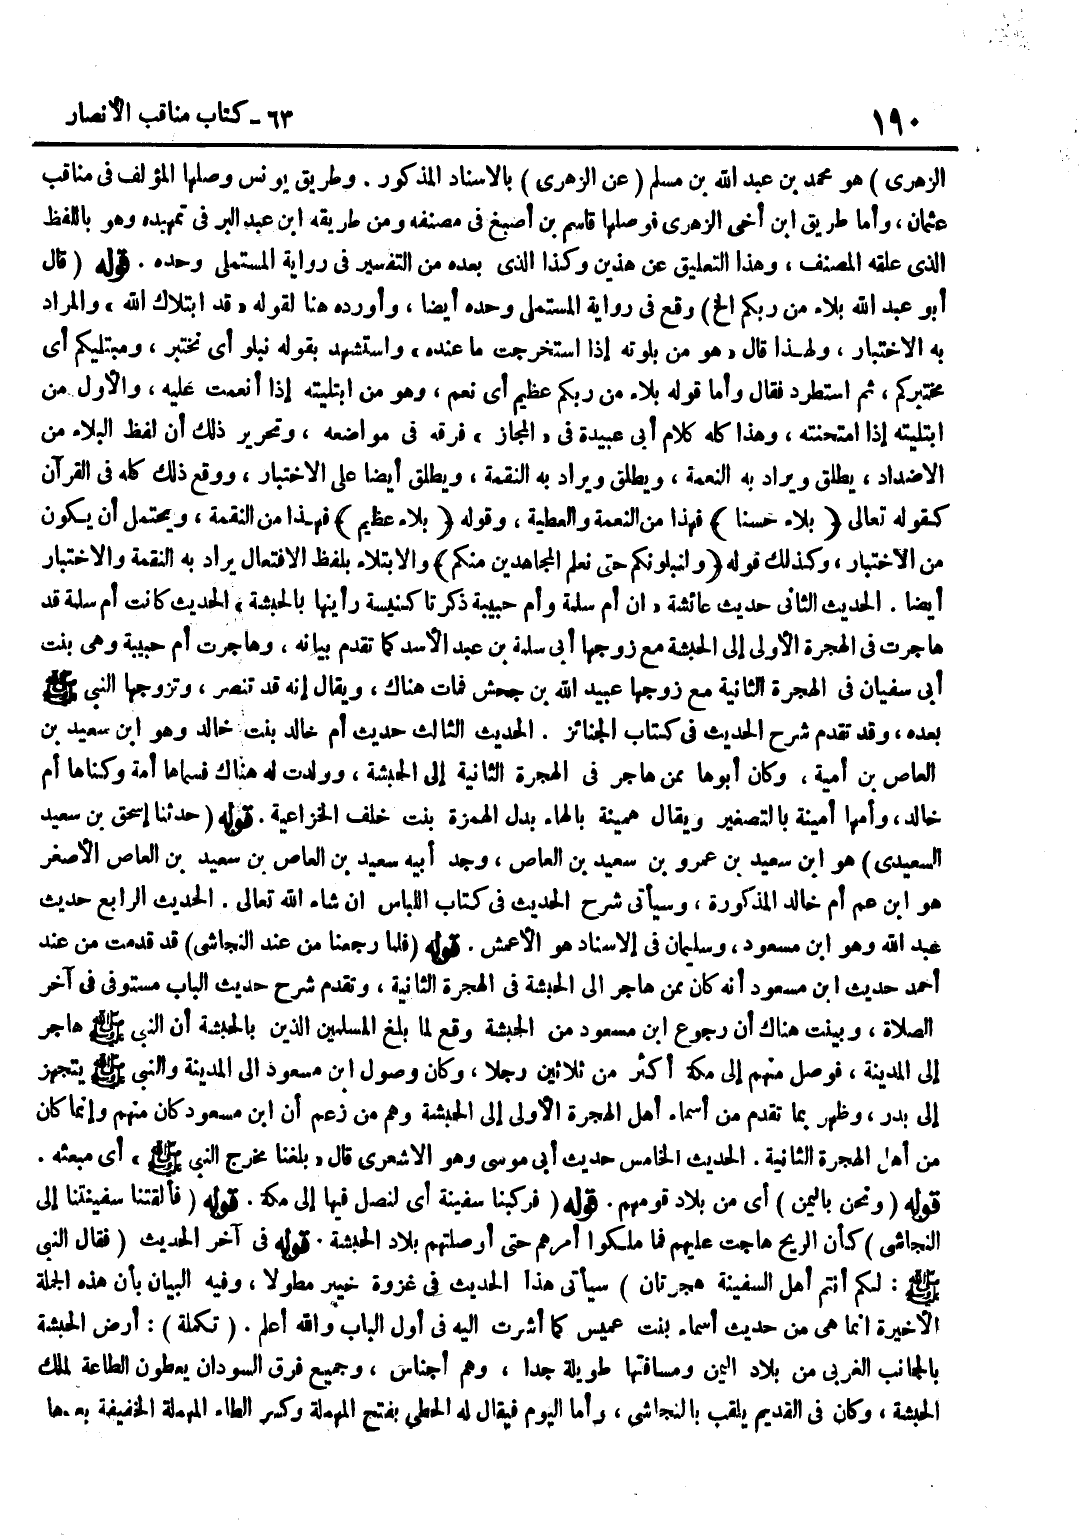 ١٩٠
٦٣ - كتاب مناقب الأنصار
الزهرى ) هو محمد بن عبد الله بن مسلم ( عن الزهرى ) بالاسناد المذكور . وطريق يونس وصلها المؤلف فى مناقب
عثمان ، وأما طريق ابن أخى الزهرى فوصلها قاسم بن أصبغ فى مصنفه ومن طريقه ابن عبد البر فى تمهيده وهو باللفظ
الذى علقه المصنف ، وهذا التعليق عن هذين وكذا الذى بعده من التفسير فى رواية المستملى وحده . قوله ( قال
أبو عبد الله بلاء من ربكم الخ ) وقع فى رواية المستملى وحده أيضا ، وأورده هنا لقوله « قد ابتلاك الله » والمراد
به الاختبار ، ولهذا قال « هو من بلوته إذا استخرجت ما عنده » واستشهد بقوله نبلو أى نختبر ، ومبتليكم أى
مختبركم ، ثم استطرد فقال وأما قوله بلاء من ربكم عظيم أى نعم ، وهو من ابتليته إذا أنعمت عليه ، والأول من
ابتليته إذا امتحنته ، وهذا كله كلام أبى عبيدة فى « المجاز » فرقه فى مواضعه ، وتحرير ذلك أن لفظ البلاء من
الاضداد ، يطلق ويراد به النعمة ، ويطلق ويراد به النقمة ، ويطلق أيضا على الاختبار ، ووقع ذلك كله فى القرآن
كقوله تعالى ﴿ بلاء حسنا ﴾ فهذا من النعمة والعطية ، وقوله ﴿ بلاء عظيم ﴾ فهذا من النقمة ، ويحتمل أن يكون
من الاختبار ، وكذلك قوله ﴿ ولنبلونكم حتى نعلم المجاهدين منكم ﴾ والابتلاء بلفظ الافتعال يراد به النقمة والاختبار
أيضا . الحديث الثانى حديث عائشة « ان أم سلمة وأم حبيبة ذكرتا كنيسة رأينها بالحبشة » الحديث كانت أم سلمة قد
هاجرت فى الهجرة الأولى إلى الحبشة مع زوجها أبى سلمة بن عبد الأسد كما تقدم بيانه ، وهاجرت أم حبيبة وهى بنت
أبى سفيان فى الهجرة الثانية مع زوجها عبيد الله بن جحش فمات هناك ، ويقال إنه قد تنصر ، وتزوجها النبى ﷺ
بعده ، وقد تقدم شرح الحديث فى كتاب الجنائز . الحديث الثالث حديث أم خالد بنت خالد وهو ابن سعيد بن
العاص بن أمية ، وكان أبوها ممن هاجر فى الهجرة الثانية إلى الحبشة ، وولدت له هناك فسماها أمة وكناها أم
خالد ، وأمها أمينة بالتصغير ويقال همينة بالهاء بدل الهمزة بنت خلف الخزاعية . قوله ( حدثنا إسحق بن سعيد
السعيدى ) هو ابن سعيد بن عمرو بن سعيد بن العاص ، وجد أبيه سعيد بن العاص بن سعيد بن العاص الأصغر
هو ابن عم أم خالد المذكورة ، وسيأتى شرح الحديث فى كتاب اللباس ان شاء الله تعالى . الحديث الرابع حديث
عبد الله وهو ابن مسعود ، وسليمان فى الاسناد هو الأعمش . قوله ( فلما رجعنا من عند النجاشى ) قد قدمت من عند
أحمد حديث ابن مسعود أنه كان ممن هاجر الى الحبشة فى الهجرة الثانية ، وتقدم شرح حديث الباب مستوفى فى آخر
الصلاة ، وبينت هناك أن رجوع ابن مسعود من الحبشة وقع لما بلغ المسلمين الذين بالحبشة أن النبى ﷺ هاجر
إلى المدينة ، فوصل منهم إلى مكة أكثر من ثلاثين رجلا ، وكان وصول ابن مسعود الى المدينة والنبى ﷺ يتجهز
إلى بدر ، وظهر بما تقدم من أسماء أهل الهجرة الأولى إلى الحبشة وهم من زعم أن ابن مسعود كان منهم وإنما كان
من أهل الهجرة الثانية . الحديث الخامس حديث أبى موسى وهو الاشعرى قال « بلغنا مخرج النبى ﷺ » أى مبعثه .
قوله ( ونحن باليمن ) أى من بلاد قومهم . قوله ( فركبنا سفينة أى لنصل فيها إلى مكة . قوله ( فألقتنا سفينتنا إلى
النجاشى ) كأن الريح هاجت عليهم فما ملكوا أمرهم حتى أوصلتهم بلاد الحبشة . قوله فى آخر الحديث ( فقال النبى
ﷺ : لكم أنتم أهل السفينة هجرتان ) سيأتى هذا الحديث فى غزوة خيبر مطولا ، وفيه البيان بأن هذه الجملة
الأخيرة انما هى من حديث أسماء بنت عميس كما أشرت اليه فى أول الباب والله أعلم . ( تكملة ) : أرض الحبشة
بالجانب الغربى من بلاد اليمن ومسافتها طويلة جدا ، وهم أجناس ، وجميع فرق السودان يعطون الطاعة لملك
الحبشة ، وكان فى القديم يلقب بالنجاشى ، وأما اليوم فيقال له الحطى بفتح المهملة وكسر الطاء المهملة الخفيفة بعدها